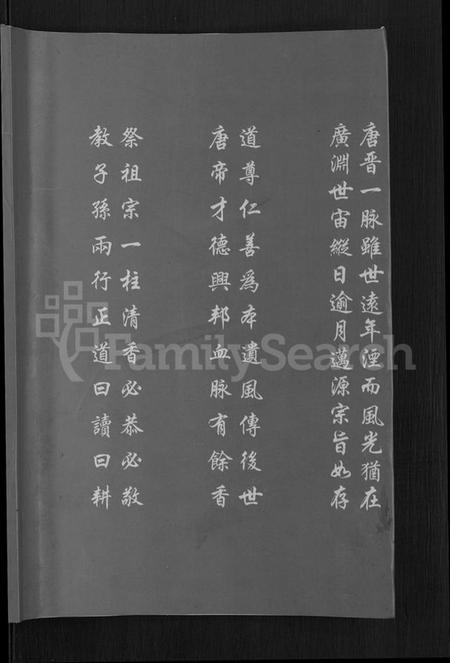 唐晋一脉雖世遠年湮而風光猶在
廣淵世宙縱日逾月邁源宗旨如存
道尊仁善為本遺風傳後世
唐帝才德興邦血脉有餘香
祭祖宗一柱清香必恭必敬
教子孫兩行正道曰讀曰耕
FamilySearch